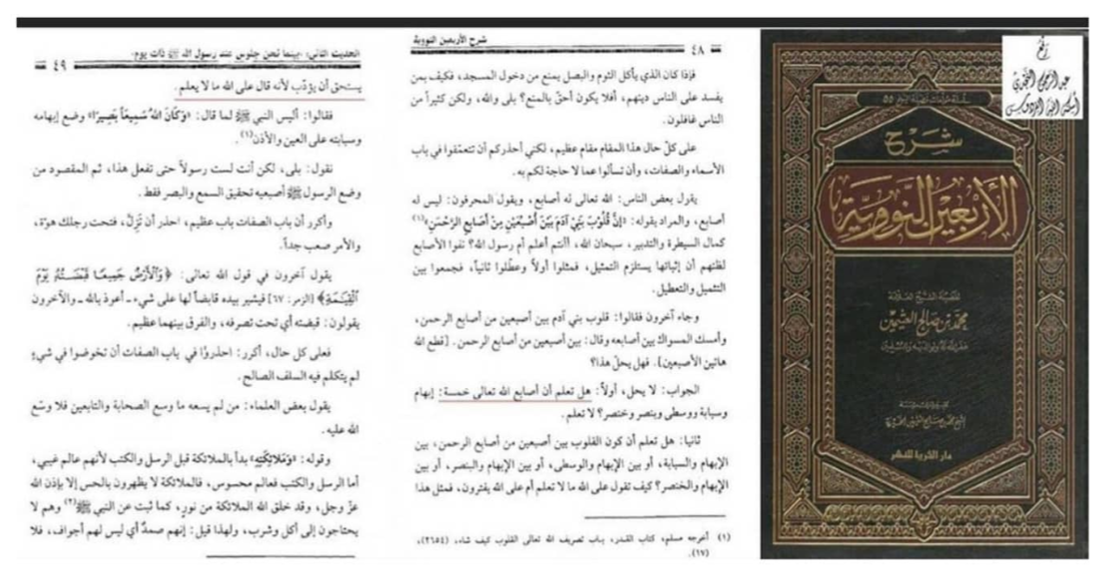 شرح
الأربعين النووية
لفضيلة الشيخ العلامة
محمد بن صالح العثيمين
غفر الله له ولوالديه وللمسلمين
دار الثريا للنشر
شرح الأربعين النووية
٤٨
فإذا كان الذي يأكل الثوم والبصل يمنع من دخول المسجد، فكيف بمن
يفسد على الناس دينهم، أفلا يكون أحقّ بالمنع؟ بلى والله، ولكن كثيراً من
الناس غافلون.
على كلّ حال هذا المقام مقام عظيم، لكني أحذركم أن تتعمّقوا في باب
الأسماء والصفات، وأن تسألوا عما لا حاجة لكم به.
يقول بعض الناس: الله تعالى له أصابع، ويقول المحرفون: ليس له
أصابع، والمراد بقوله: «إنَّ قُلُوبَ بَنِي آدَمَ بَيْنَ أُصْبُعَيْنِ مِنْ أَصَابِعِ الرَّحْمَنِ»(١)
كمال السيطرة والتدبير، سبحان الله، أأنتم أعلم أم رسول الله؟ نفوا الأصابع
لظنهم أن إثباتها يستلزم التمثيل، فمثلوا أولاً وعطّلوا ثانياً، فجمعوا بين
التثميل والتعطيل.
وجاء آخرون فقالوا: قلوب بني آدم بين أصبعين من أصابع الرحمن،
وأمسك المسواك بين أصابعه وقال: بين أصبعين من أصابع الرحمن. [قطع الله
هاتين الأصبعين]. فهل يحلّ هذا؟
الجواب: لا يحل، أولاً: هل تعلم أن أصابع الله تعالى خمسة: إبهام
وسبابة ووسطى وبنصر وخنصر؟ لا تعلم.
ثانيا: هل تعلم أن كون القلوب بين أصبعين من أصابع الرحمن، بين
الإبهام والسبابة، أو بين الإبهام والوسطى، أو بين الإبهام والبنصر، أو بين
الإبهام والخنصر؟ كيف تقول على الله ما لا تعلم أم على الله يفترون، فمثل هذا
(١) أخرجه مسلم، كتاب القدر، باب تصريف الله تعالى القلوب كيف شاء، (٢٦٥٤)،
(١٧).
الحديث الثاني: «بينما نحن جلوس عند رسول الله ﷺ ذات يوم.
٤٩
يستحق أن يؤدّب لأنه قال على الله ما لا يعلم.
فقالوا: أليس النبي ﷺ لما قال: «وَكَانَ اللهُ سَمِيعاً بَصِيرًا» وضع إبهامه
وسبابته على العين والأذن(١).
نقول: بلى، لكن أنت لست رسولاً حتى تفعل هذا، ثم المقصود من
وضع الرسول ﷺ أصبعيه تحقيق السمع والبصر فقط.
وأكرر أن باب الصفات باب عظيم، احذر أن تَزِلَّ، فتحت رجلك هوّة،
والأمر صعب جداً.
يقول آخرون في قول الله تعالى: ﴿وَٱلْأَرْضُ جَمِيعًا قَبْضَتُهُ يَوْمَ
ٱلْقِيَٰمَةِ﴾ [الزمر: ٦٧] فيشير بيده قابضاً لها على شيء ـ أعوذ بالله ـ والآخرون
يقولون: قبضته أي تحت تصرفه، والفرق بينهما عظيم.
فعلى كل حال، أكرر: احذروا في باب الصفات أن تخوضوا في شيءٍ
لم يتكلم فيه السلف الصالح.
يقول بعض العلماء: من لم يسعه ما وسع الصحابة والتابعين فلا وسّع
الله عليه.
وقوله: «وَمَلائِكَتِهِ» بدأ بالملائكة قبل الرسل والكتب لأنهم عالم غيبي،
أما الرسل والكتب فعالم محسوس، فالملائكة لا يظهرون بالحس إلا بإذن الله
عزّ وجل، وقد خلق الله الملائكة من نورٍ، كما ثبت عن النبي ﷺ(٢) وهم لا
يحتاجون إلى أكل وشرب، ولهذا قيل: إنهم صمدٌ أي ليس لهم أجواف، فلا